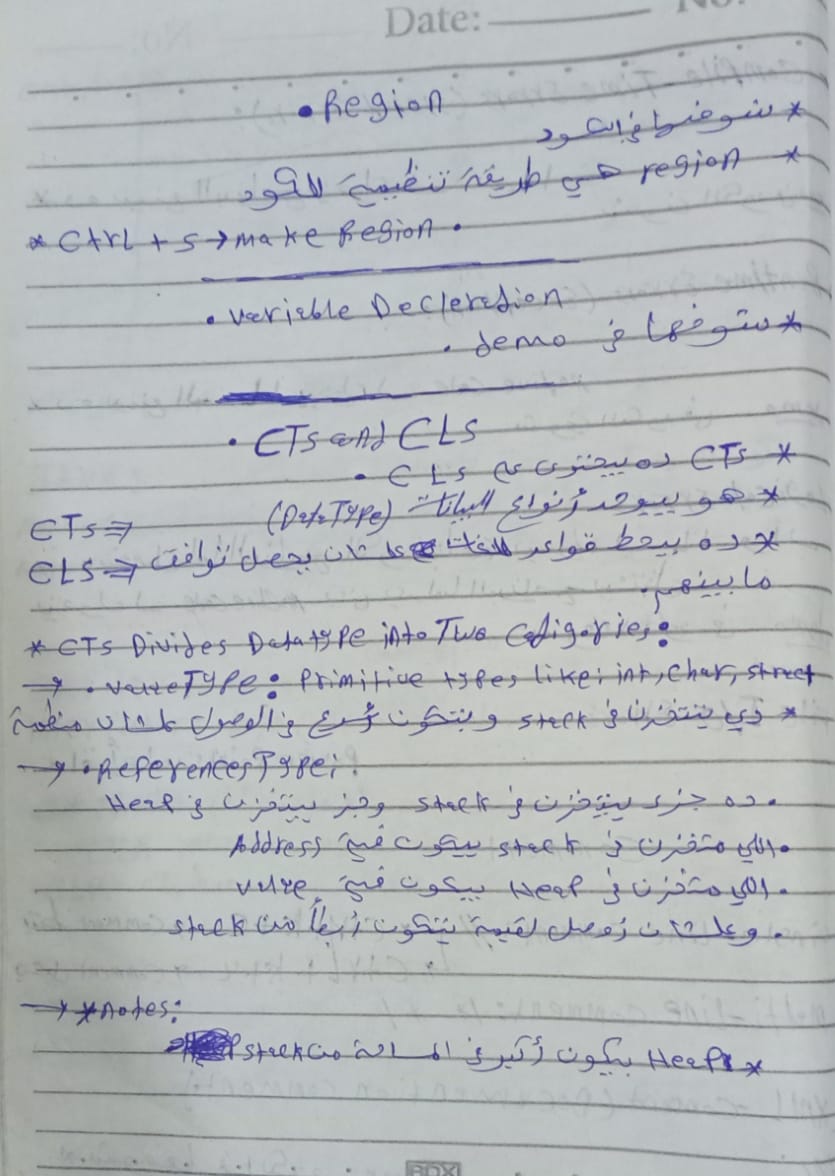 Date:
No:
• Region
* شوفها في الكود
* region هي طريقة تنظيمية للكود
* Ctrl + s → make Region .
• variable Decleration
* شوفها في demo .
• CTs and CLS
* CTs ده بيحتوي على CLs .
CTs ⇒ * هو بيوحد أنواع البيانات (DataType)
CLS ⇒ * ده بيحط قواعد للغات علشان يحصل توافق
ما بينهم.
* CTs Divides Datatype into Two Catigories:
→ . valueType: Primitive types like: int, char, struct
* دي بتتخزن في stack وبتكون أسرع في الوصول علشان منظمة
→ . ReferencesType:
. ده جزء بيتخزن في stack وجز بيتخزن في Heap
. اللي متخزن في stack بيكون فيه Address
. اللي متخزن في Heap بيكون فيه value
. وعلشان أوصل لقيمة بتكون أبطأ من stack
→ * notes:
* Heap بيكون أكبر في المساحة من stack
BOX